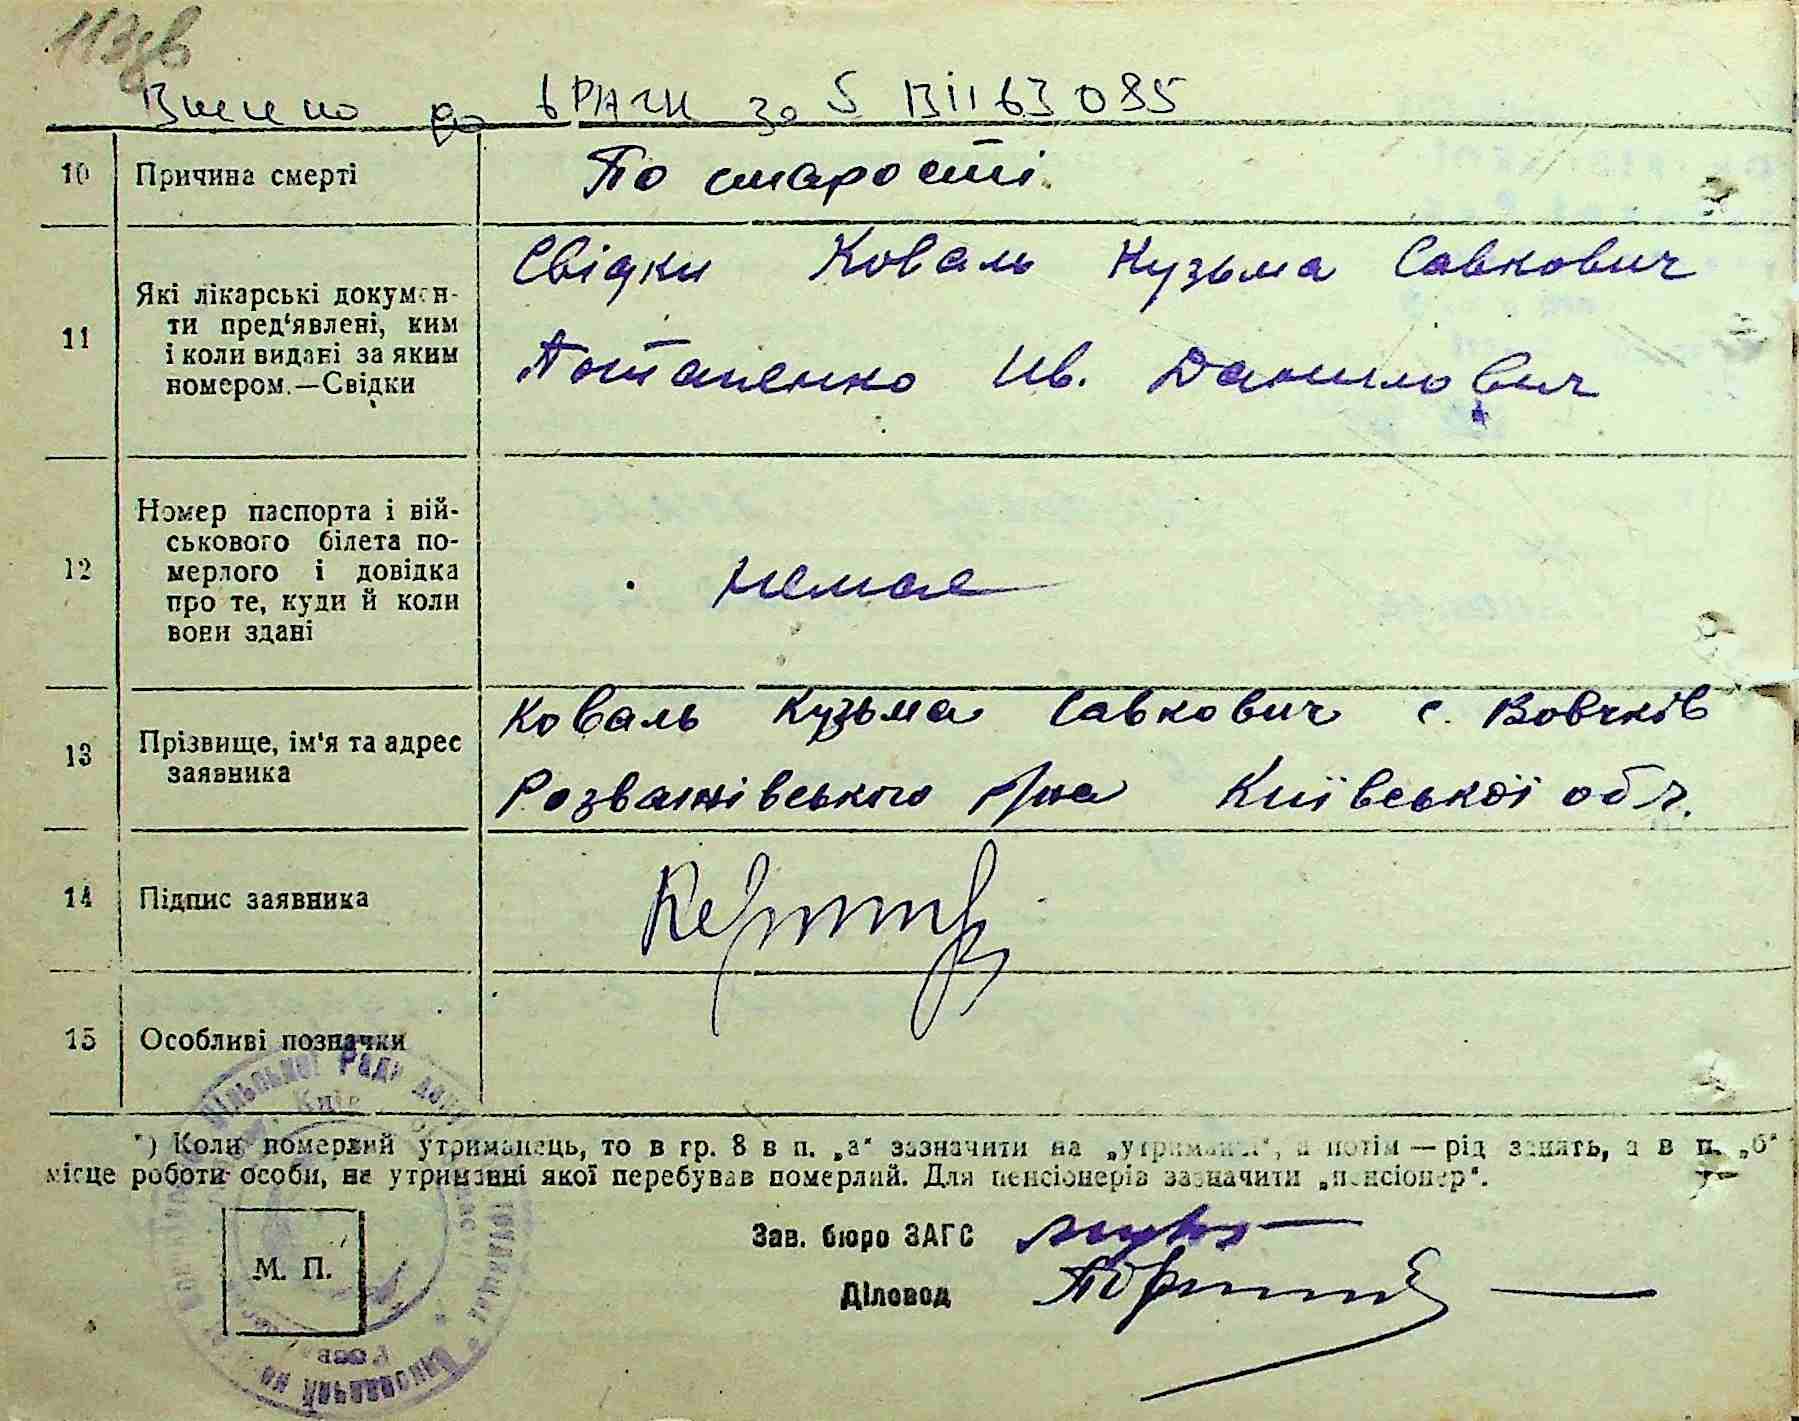 113зв
Внесено до ДРАЦС за
10 Причина смерті По старості
11 Які лікарські докумен-
ти пред'явлені, ким
і коли видані за яким
номером.—Свідки
Свідки Коваль Кузьма Савкович
Потапенко Ив. Данилович
12 Номер паспорта і вій-
ськового білета по-
мерлого і довідка
про те, куди й коли
вони здані
немає
13 Прізвище, ім'я та адрес
заявника
Коваль Кузьма Савкович с. Вовчків
Розважівського р/на Київської обл.
14 Підпис заявника
15 Особливі позначки
*) Коли померлий утриманець, то в гр. 8 в п. „а" зазначити на „утриманні", а потім — рід занять, а в п. „б"
місце роботи особи, на утриманні якої перебував померлий. Для пенсіонерів зазначити „пенсіонер".
М. П.
Зав. бюро ЗАГС
Діловод